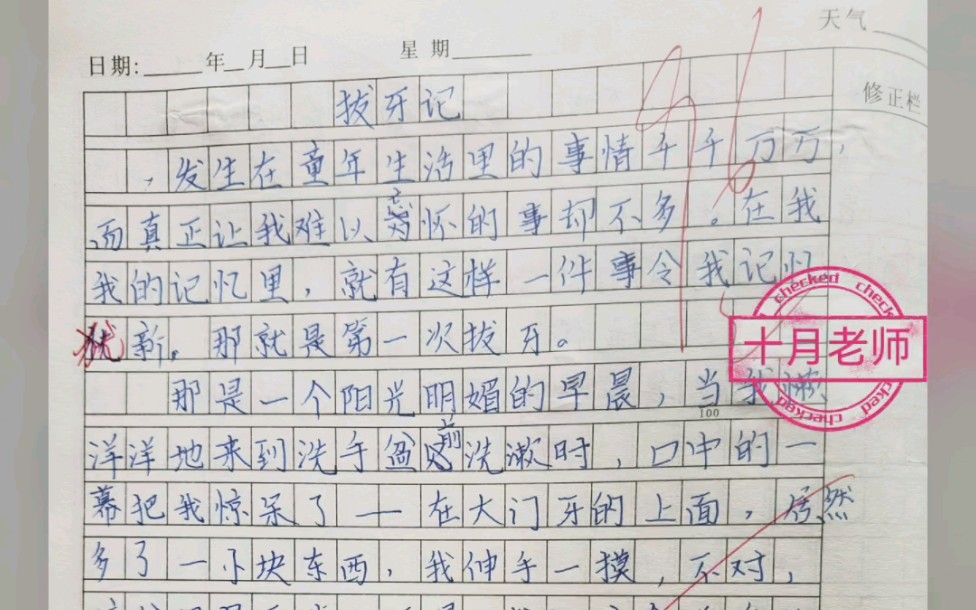 天气
日期: 年 月 日 星期
修正栏
96
拔牙记
,发生在童年生活里的事情千千万万,
而真正让我难以忘怀的事却不多。在我
我的记忆里,就有这样一件事令我记忆
犹新。那就是第一次拔牙。
那是一个阳光明媚的早晨,当我懒
100
洋洋地来到洗手盆前洗漱时,口中的一
幕把我惊呆了——在大门牙的上面,居然
多了一小块东西,我伸手一摸,不对,
checked checked
十月老师
checked checked